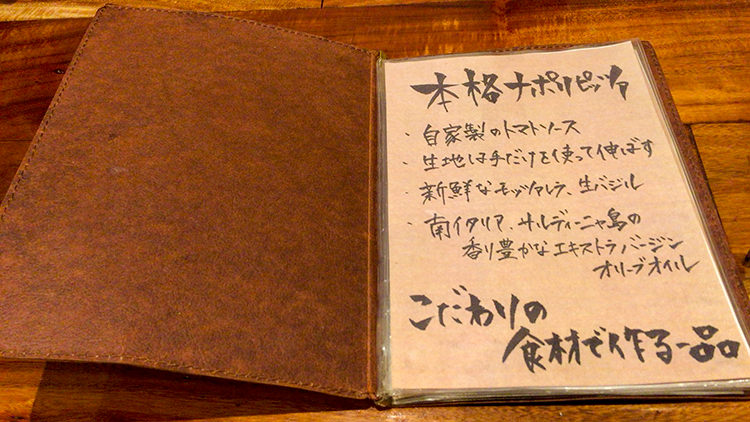 本格ナポリピッツァ
・自家製のトマトソース
・生地は手だけを使って伸ばす
・新鮮なモッツァレラ、生バジル
・南イタリア、サルディーニャ島の
香り豊かなエキストラバージン
オリーブオイル
こだわりの
食材で作る一品。